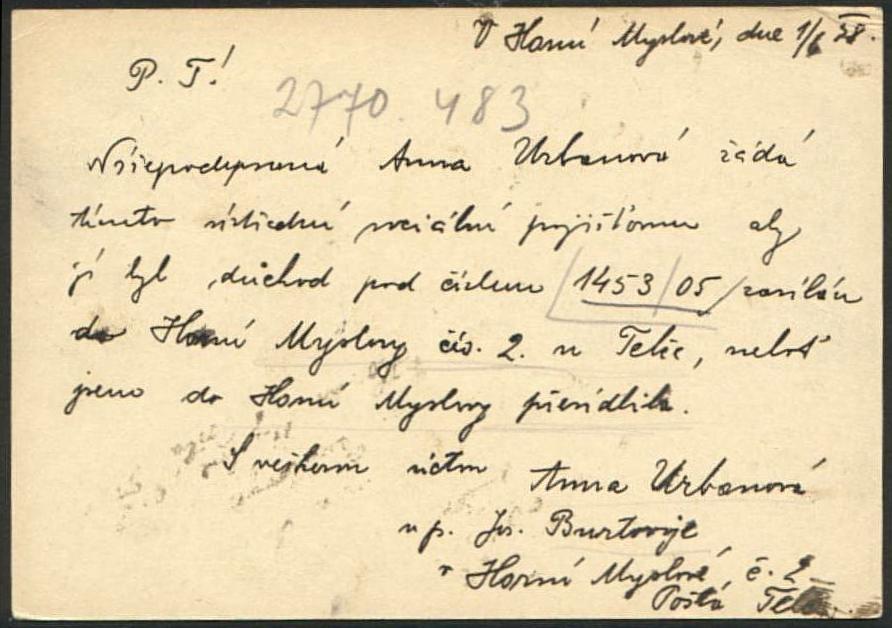 V Horní Myslové, dne 1/6 38.
P. T.!
2770 483
Nížepodepsaná Anna Urbanová žádá
tímto ústřední sociální pojišťovnu aby
jí byl důchod pod číslem /1453/05/ zasílán
do Horní Myslovy čís. 2. u Telče, neboť
jsem do Horní Myslovy přesídlila.
S veškerou úctou
Anna Urbanová
u p. Jos.
v Horní Myslové, č. 2
Pošta Telč